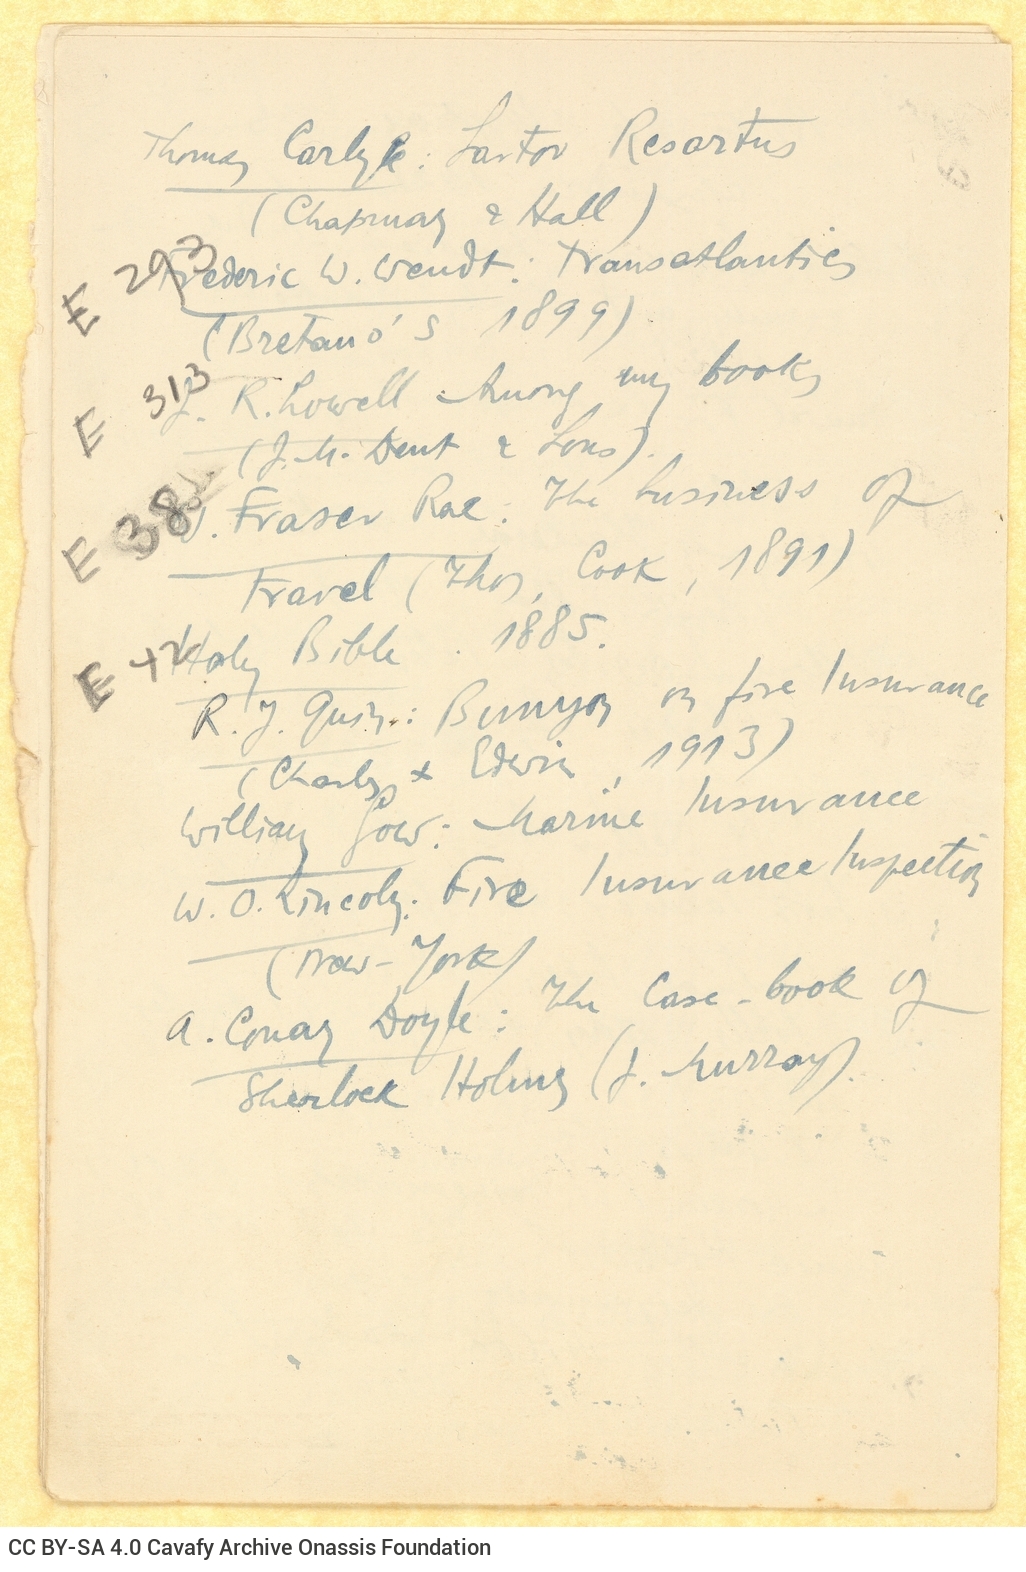 Thomas Carlyle: Sartor Resartus
(Chapman & Hall)
E 293
Frederic W. Wendt: Transatlantics
(Bretano's 1899)
E 313
J. R. Lowell: Among my books
(J. M. Dent & Sons).
E 38
W. Fraser Rae: The business of
Travel (Thos, Cook, 1891)
E 42
Holy Bible. 1885.
R. J. Quin.: Bunyon on fire Insurance
(Charles & Edwin, 1913)
William Gow: Marine Insurance
W. O. Lincoln: Fire Insurance Inspection
(New-York)
A. Conan Doyle: The Case-book of
Sherlock Holmes (J. Murray).
CC BY-SA 4.0 Cavafy Archive Onassis Foundation